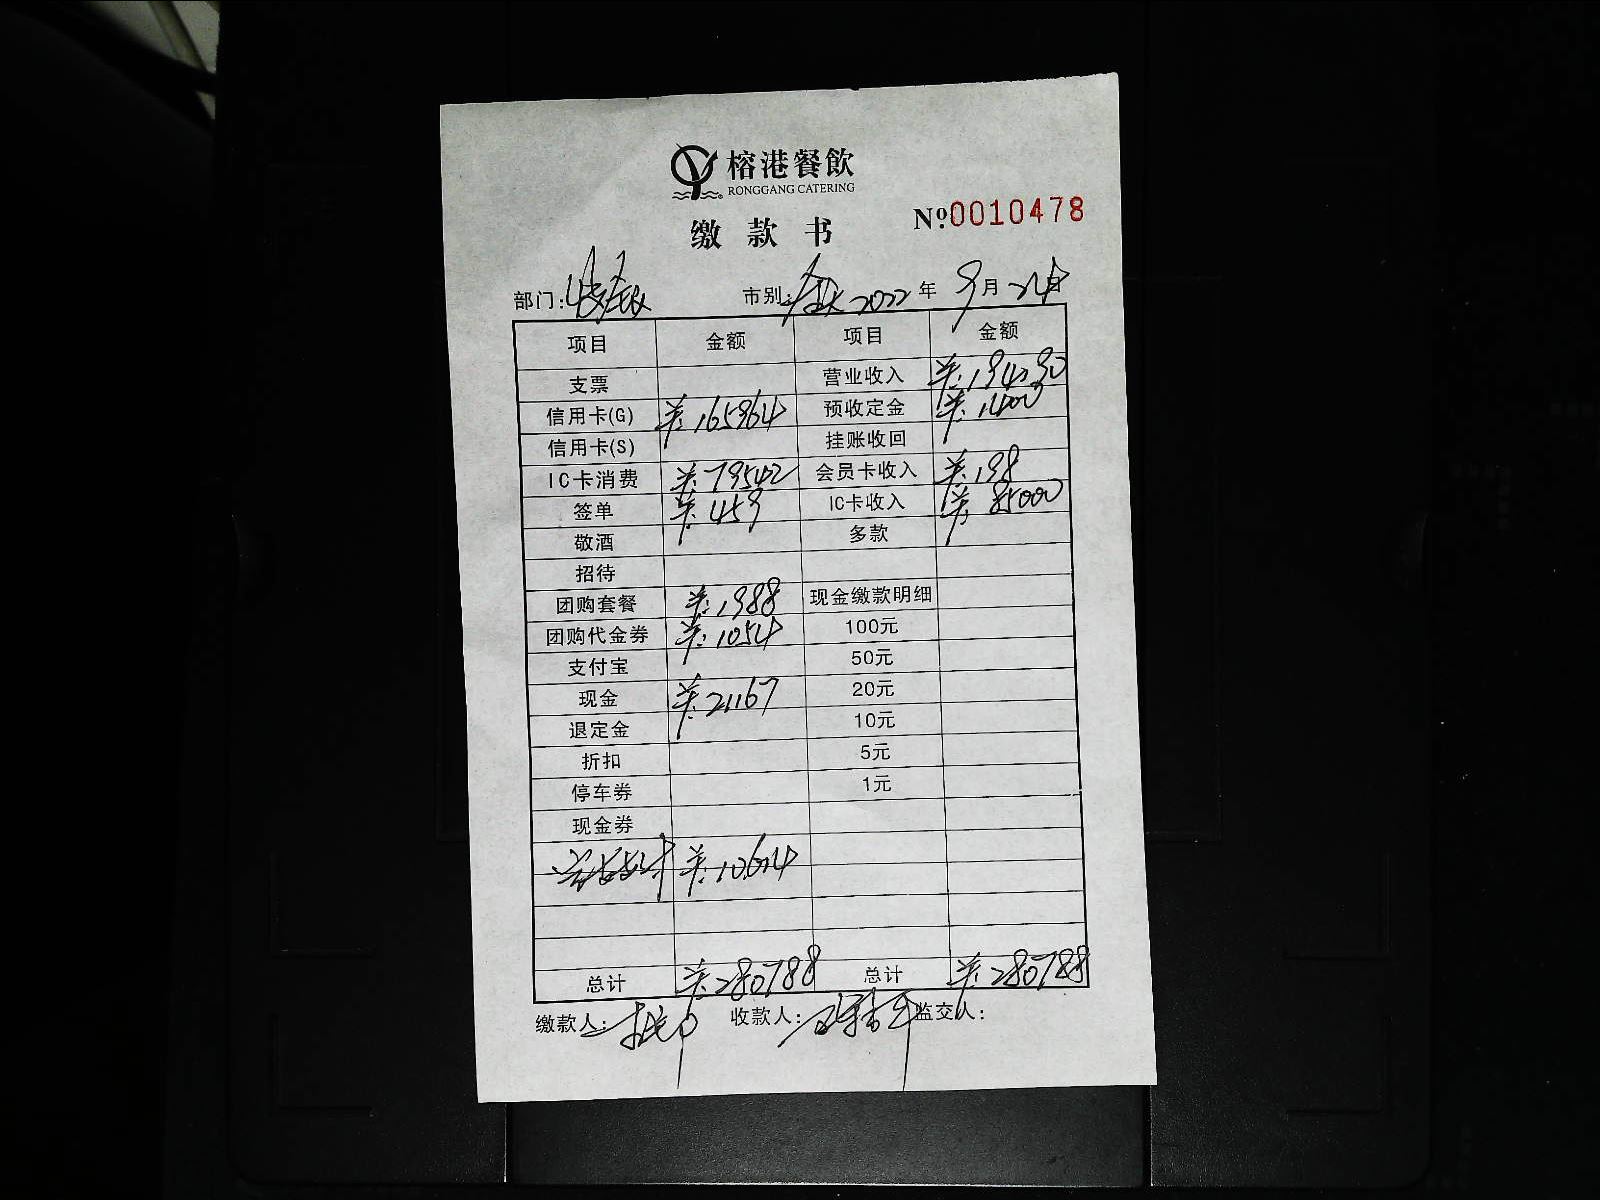 榕港餐飲
RONGGANG CATERING
缴款书
Nº:0010478
部门: 市别: 2022年 9月24日
项目 金额 项目 金额
支票 营业收入 ¥:194190
信用卡(G) ¥:165964 预收定金 ¥:1400
信用卡(S) 挂账收回
IC卡消费 ¥:79542 会员卡收入 ¥:198
签单 ¥:459 IC卡收入 ¥:85000
敬酒 多款
招待
团购套餐 ¥:1988 现金缴款明细
团购代金券 ¥:1054 100元
支付宝 50元
现金 ¥:21167 20元
退定金 10元
折扣 5元
停车券 1元
现金券
¥:10614
总计 ¥:280788 总计 ¥:280788
缴款人: 收款人: 监交人: